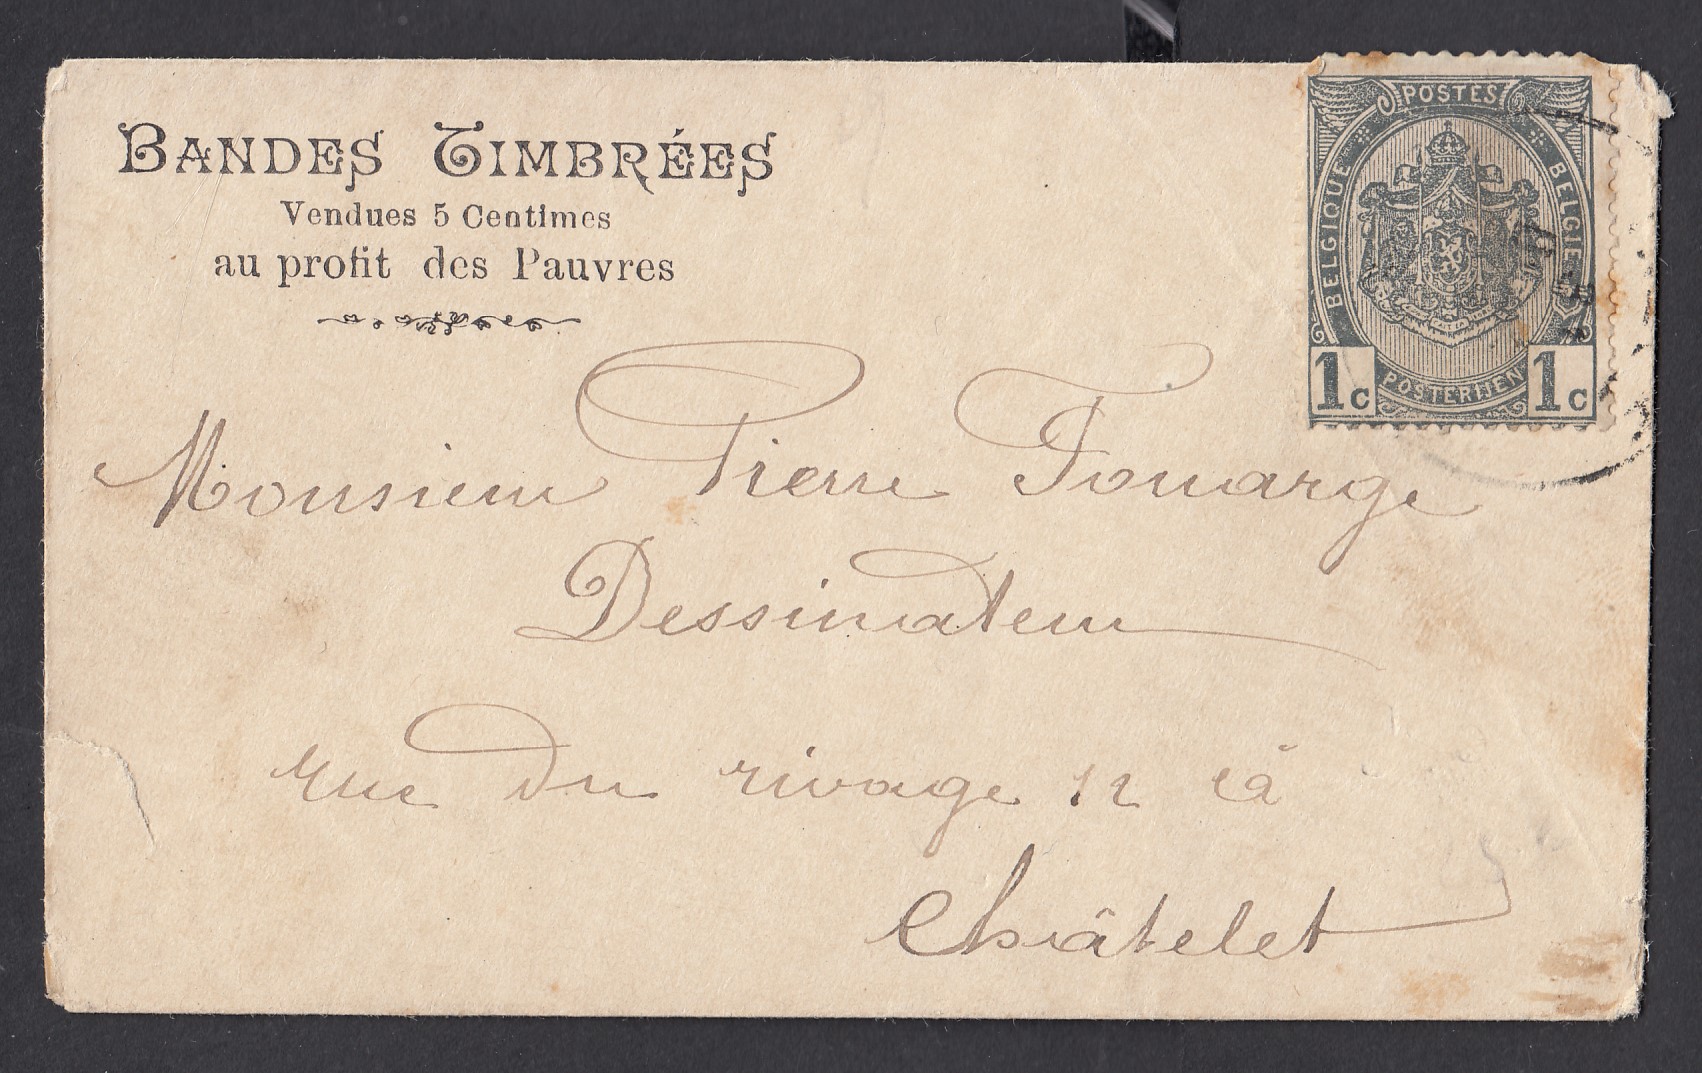 BANDES TIMBRÉES
Vendues 5 Centimes
au profit des Pauvres
POSTES
BELGIQUE
BELGIË
1c POSTERIJEN 1c
Monsieur Pierre Fouarge
Dessinateur
rue du rivage 12 à
Châtelet